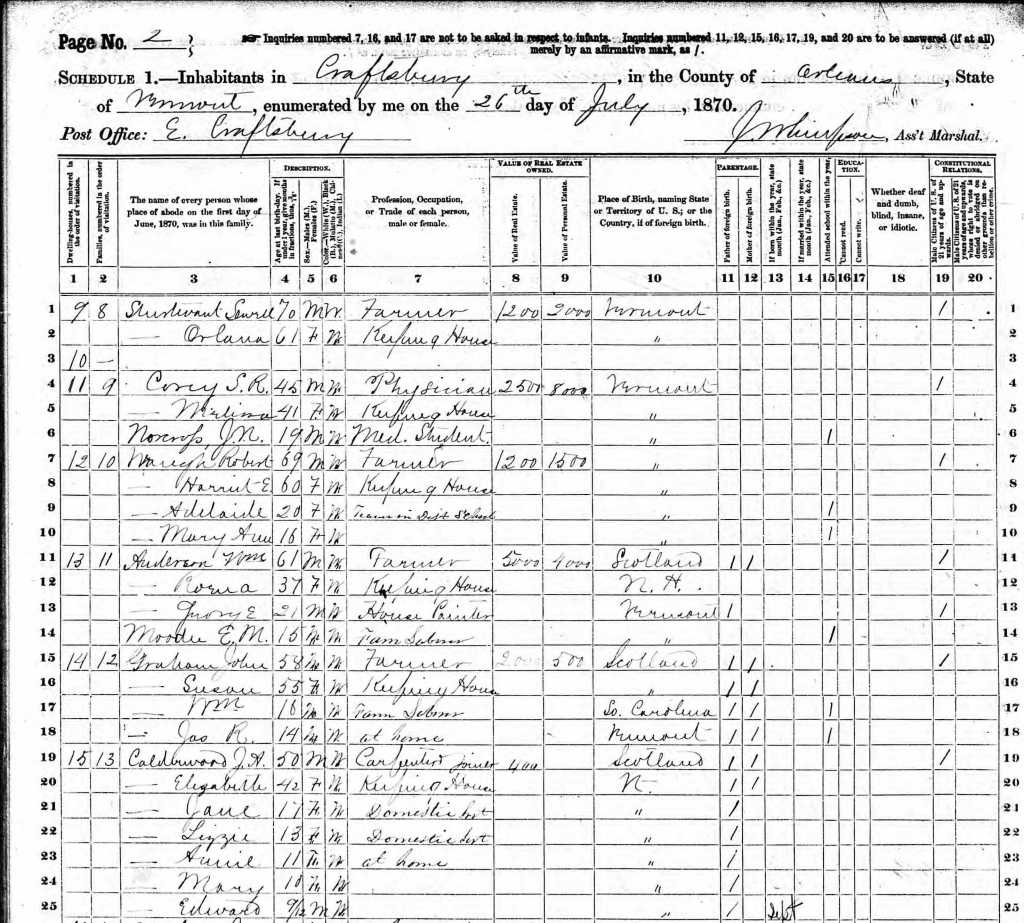 Page No. 2 } ☞ Inquiries numbered 7, 16, and 17 are not to be asked in respect to infants. Inquiries numbered 11, 12, 15, 16, 17, 19, and 20 are to be answered (if at all)
merely by an affirmative mark, as /.
SCHEDULE 1.—Inhabitants in Craftsbury, in the County of Orleans, State
of Vermont, enumerated by me on the 26th day of July, 1870.
Post Office: E. Craftsbury Ass't Marshal.
DESCRIPTION. VALUE OF REAL ESTATE OWNED. PARENTAGE. EDUCATION. CONSTITUTIONAL RELATIONS.
Dwelling-houses, numbered in the order of visitation.
Families, numbered in the order of visitation.
The name of every person whose place of abode on the first day of June, 1870, was in this family.
Age at last birth-day. If under 1 year, give months in fractions, thus, 3/12
Sex.—Males (M.), Females (F.)
Color.—White (W.), Black (B.), Mulatto (M.), Chinese (C.), Indian (I.)
Profession, Occupation, or Trade of each person, male or female.
Value of Real Estate.
Value of Personal Estate.
Place of Birth, naming State or Territory of U. S.; or the Country, if of foreign birth.
Father of foreign birth.
Mother of foreign birth.
If born within the year, state month (Jan., Feb., &c.)
If married within the year, state month (Jan., Feb., &c.)
Attended school within the year.
Cannot read.
Cannot write.
Whether deaf and dumb, blind, insane, or idiotic.
Male Citizens of U. S. of 21 years of age and upwards.
Male Citizens of U. S. of 21 years of age and upwards, whose right to vote is denied or abridged on other grounds than rebellion or other crime.
1 2 3 4 5 6 7 8 9 10 11 12 13 14 15 16 17 18 19 20
1 9 8 Sturtevant Sewell 70 M W Farmer 1200 2000 Vermont / 1
2 — Orlana 61 F W Keeping House " 2
3 10 — 3
4 11 9 Corey S. R. 45 M W Physician 2500 8000 Vermont / 4
5 — 41 F W Keeping House " 5
6 Norcross, J. N. 19 M W Med. Student " / 6
7 12 10 Waugh Robert 69 M W Farmer 1200 1500 " / 7
8 — Harriet E. 60 F W Keeping House " 8
9 — Adelaide 20 F W Dist School " / 9
10 — Mary Ann 16 F W " / 10
11 13 11 Anderson Wm 61 M W Farmer 5000 4000 Scotland / / / 11
12 — 37 F W Keeping House N. H. 12
13 — George E 21 M W House Painter Vermont / / 13
14 Moodie E. M. 15 M W Farm Labour " / 14
15 14 12 Graham John 58 M W Farmer 2000 500 Scotland / / / 15
16 — Susan 55 F W Keeping House " / / 16
17 — Wm 16 M W Farm Labour So. Carolina / / / 17
18 — Jas R. 14 M W at home Vermont / / / 18
19 15 13 Calderwood J. A. 50 M W Carpenter & Joiner 400 Scotland / / / 19
20 — Elizabeth 42 F W Keeping House / / 20
21 — Jane 17 F W Domestic Sert " / 21
22 — Lizzie 13 F W Domestic Sert " / 22
23 — Annie 11 W at home " / 23
24 — Mary 10 W " / 24
25 — Edward 9/12 M W " / Sept 25